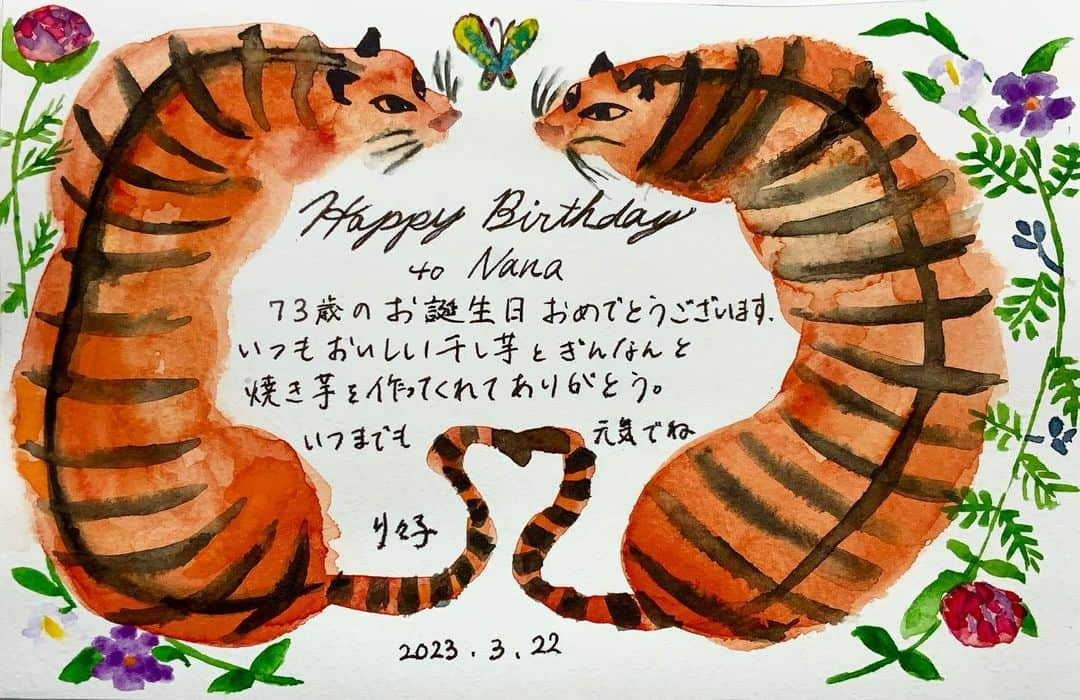 Happy Birthday
to Nana
73歳のお誕生日おめでとうございます.
いつもおいしい干し芋とぎんなんと
焼き芋を作ってくれてありがとう。
いつまでも 元気でね
り々子
2023.3.22